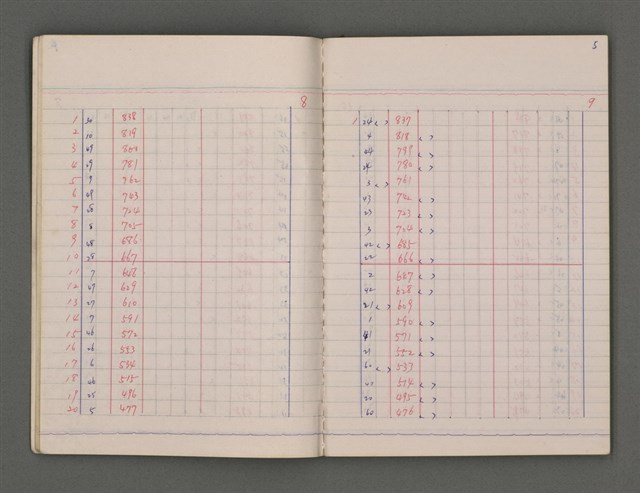 8
1 30 838
2 10 819
3 49 800
4 29 781
5 9 762
6 48 743
7 28 724
8 8 705
9 48 686
10 28 667
11 7 648
12 47 629
13 27 610
14 7 591
15 46 572
16 26 553
17 6 534
18 46 515
19 25 496
20 5 477
5
9
1 24 < > 837
4 818 < >
44 799 < >
24 780 < >
3 < > 761
43 742 < >
23 723 < >
3 704 < >
42 < > 685
22 666 < >
2 647 < >
42 628 < >
21 < > 609
1 590 < >
41 571 < >
21 552 < >
60 < > 533
514 < >
20 495 < >
60 476 < >